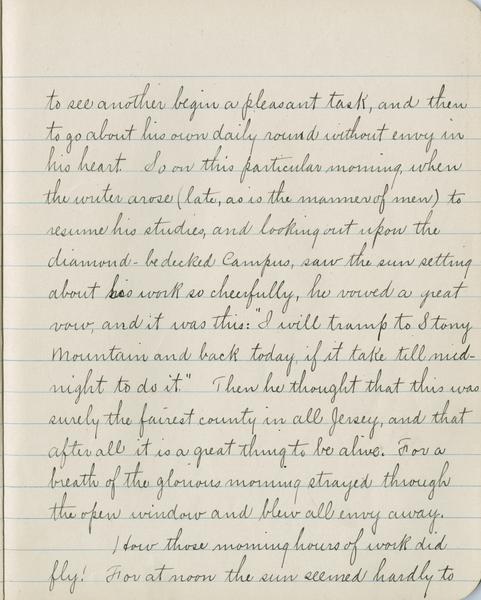 to see another begin a pleasant task, and then
to go about his own daily round without envy in
his heart. So on this particular morning, when
the writer arose (late, as is the manner of men) to
resume his studies, and looking out upon the
diamond-bedecked Campus, saw the sun setting
about his work so cheerfully, he vowed a great
vow, and it was this: "I will tramp to Stony
Mountain and back today, if it take till mid-
night to do it." Then he thought that this was
surely the fairest county in all Jersey, and that
after all it is a great thing to be alive. For a
breath of the glorious morning strayed through
the open window and blew all envy away.
How those morning hours of work did
fly! For at noon the sun seemed hardly to